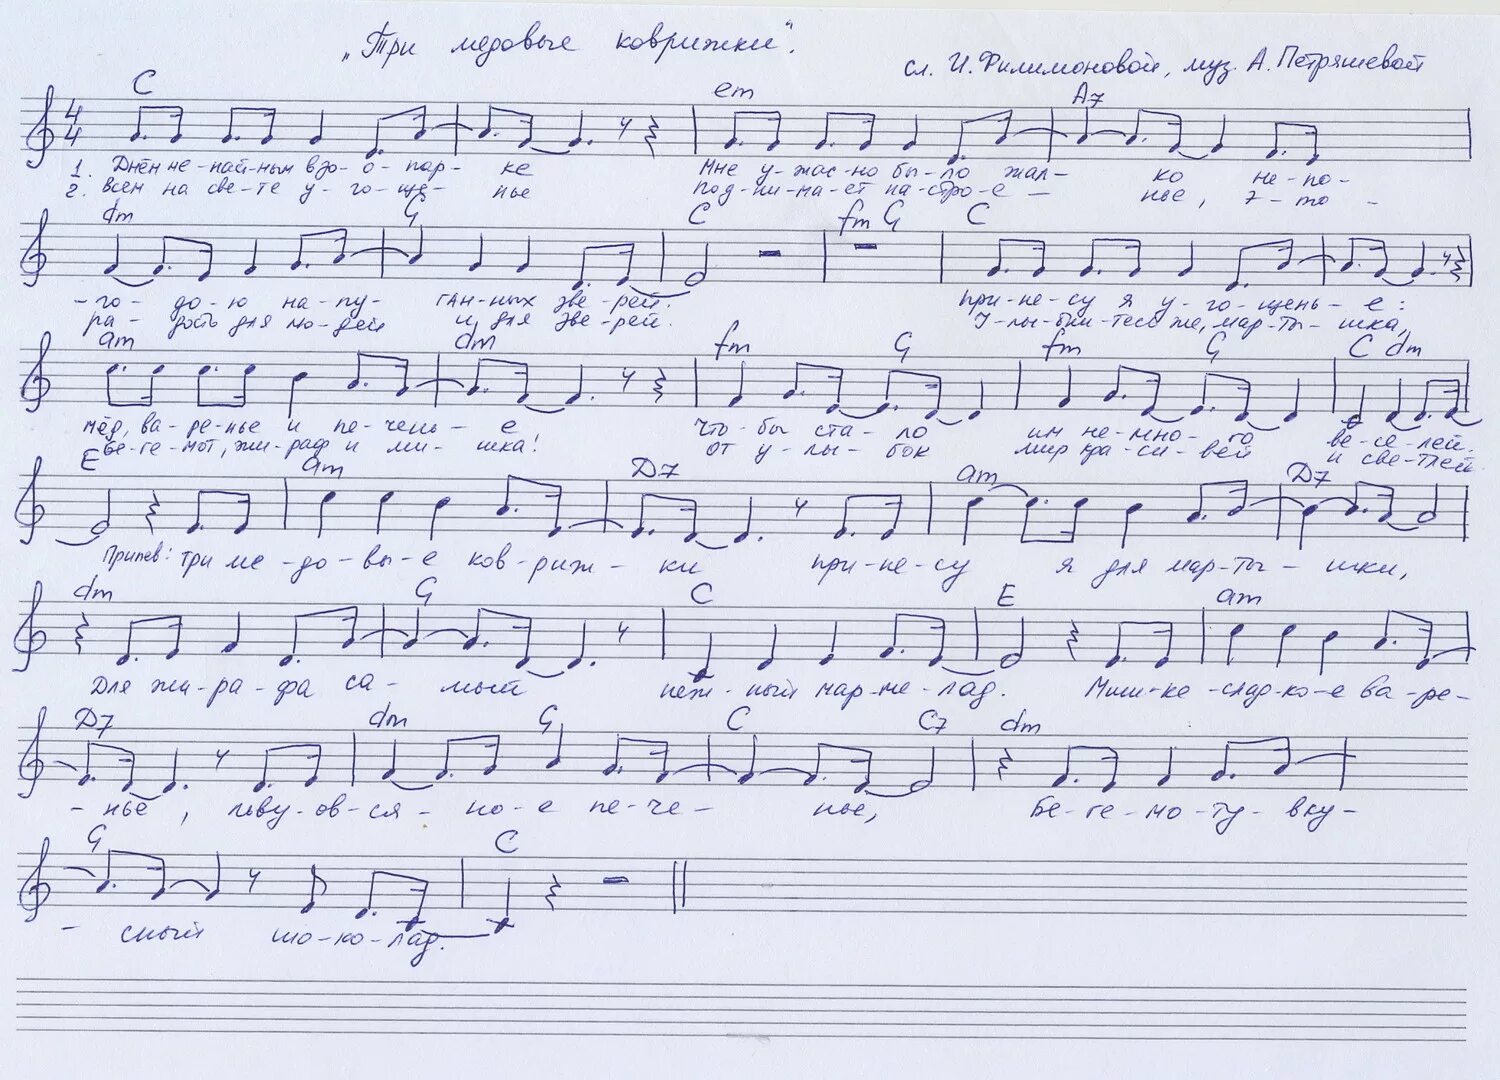 „Три медовые коврижки".
сл. И. Филимоновой, муз. А. Петряшевой
C em A7
4
4
1. Днём не-най-ным в зо-о-пар-ке Мне у-жас-но бы-ло жал-ко не-по-
2. Всем на све-те у-го-ще-нье под-ни-ма-ет на-строе-нье, э-то-
dm G C fm G C
-го-до-ю на-пу-ган-ных зве-рей. при-не-су я у-го-щень-е:
ра-дость для лю-дей и для зве-рей. У-лы-бни-тесь же, мар-ты-шка,
am dm fm G fm G C dm
мёд, ва-ре-нье и пе-чень-е Что-бы ста-ло им не-мно-го ве-се-лей.
бе-ге-мот, жи-раф и ми-шка! от у-лы-бок мир кра-си-вей и све-тлей.
E am D7 am D7
Припев: три ме-до-вы-е ков-риж-ки при-не-су я для мар-ты-шки,
dm G C E am
Для жи-ра-фа са-мый неж-ный мар-ме-лад. Миш-ке слад-ко-е ва-ре-
D7 dm G C C7 dm
-нье, льву-ов-ся-но-е пе-че-нье, Бе-ге-мо-ту-вку-
G C
-сный шо-ко-лад.